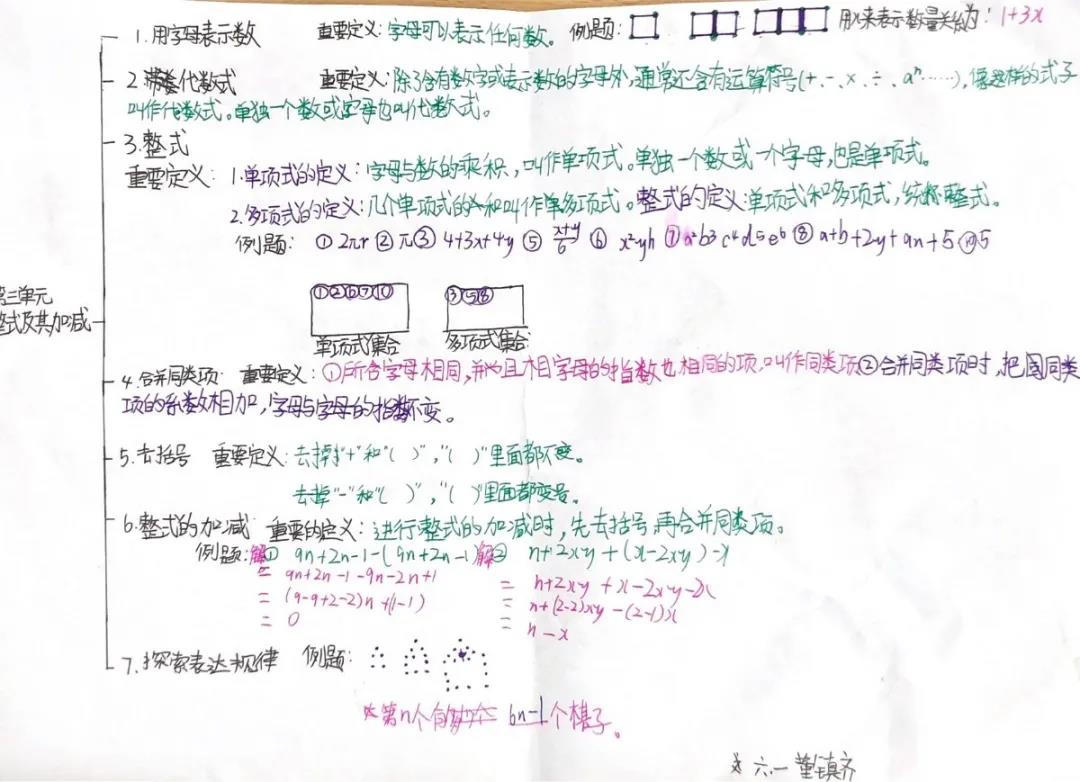 1.用字母表示数 重要定义:字母可以表示任何数。 例题: 用x来表示数量关系为: 1+3x
2. 代数式 重要定义:除了含有数字或表示数的字母外,通常还含有运算符号(+、-、×、÷、aⁿ……),像这样的式子
叫作代数式。单独一个数或字母也叫代数式。
3.整式
重要定义: 1.单项式的定义:字母与数的乘积,叫作单项式。单独一个数或一个字母,也是单项式。
2.多项式的定义:几个单项式的和叫作多项式。整式的定义:单项式和多项式,统称整式。
例题: ① 2πr ② π ③ 4+3x+4y ⑤ (x+y)/6 ⑥ x²yh ⑦ a²b³c⁴d⁵e⁶ ⑧ a+b+2y+9n+5 ⑩ 5
①②⑥⑦⑩ ③⑤⑧
单项式集合 多项式集合
第三单元
整式及其加减
4.合并同类项 重要定义:①所含字母相同,并且相同字母的指数也相同的项,叫作同类项②合并同类项时,把同类
项的系数相加,字母与字母的指数不变。
5.去括号 重要定义:去掉"+"和"( )","( )"里面都不变。
去掉"-"和"( )","( )"里面都变号。
6.整式的加减 重要的定义:进行整式的加减时,先去括号,再合并同类项。
例题:解① 9n+2n-1-(9n+2n-1) 解② n+2xy+(x-2xy)-x
= 9n+2n-1-9n-2n+1 = n+2xy+x-2xy-x
= (9-9+2-2)n+(1-1) = n+(2-2)xy-(2-1)x
= 0 = n-x
7.探索表达规律 例题:
第n个有 6n-1个棋子。
六.一 董镇齐